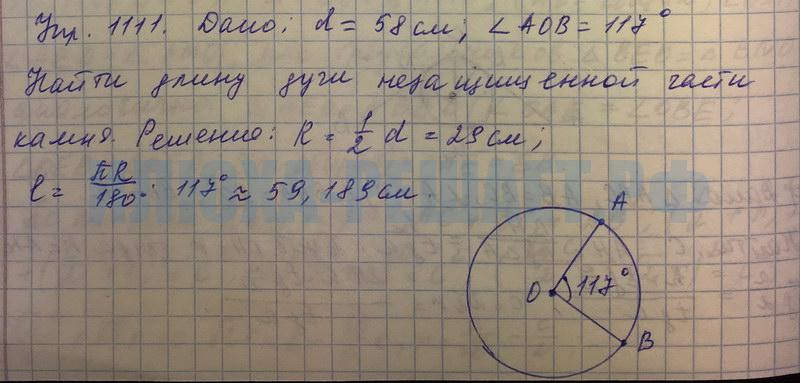 Упр. 1111. Дано: d = 58 см; ∠AOB = 117°
Найти длину дуги незащищенной части
камня. Решение: R = 1/2 d = 29 см;
l = πR/180° · 117° ≈ 59,189 см.
A
O 117°
B